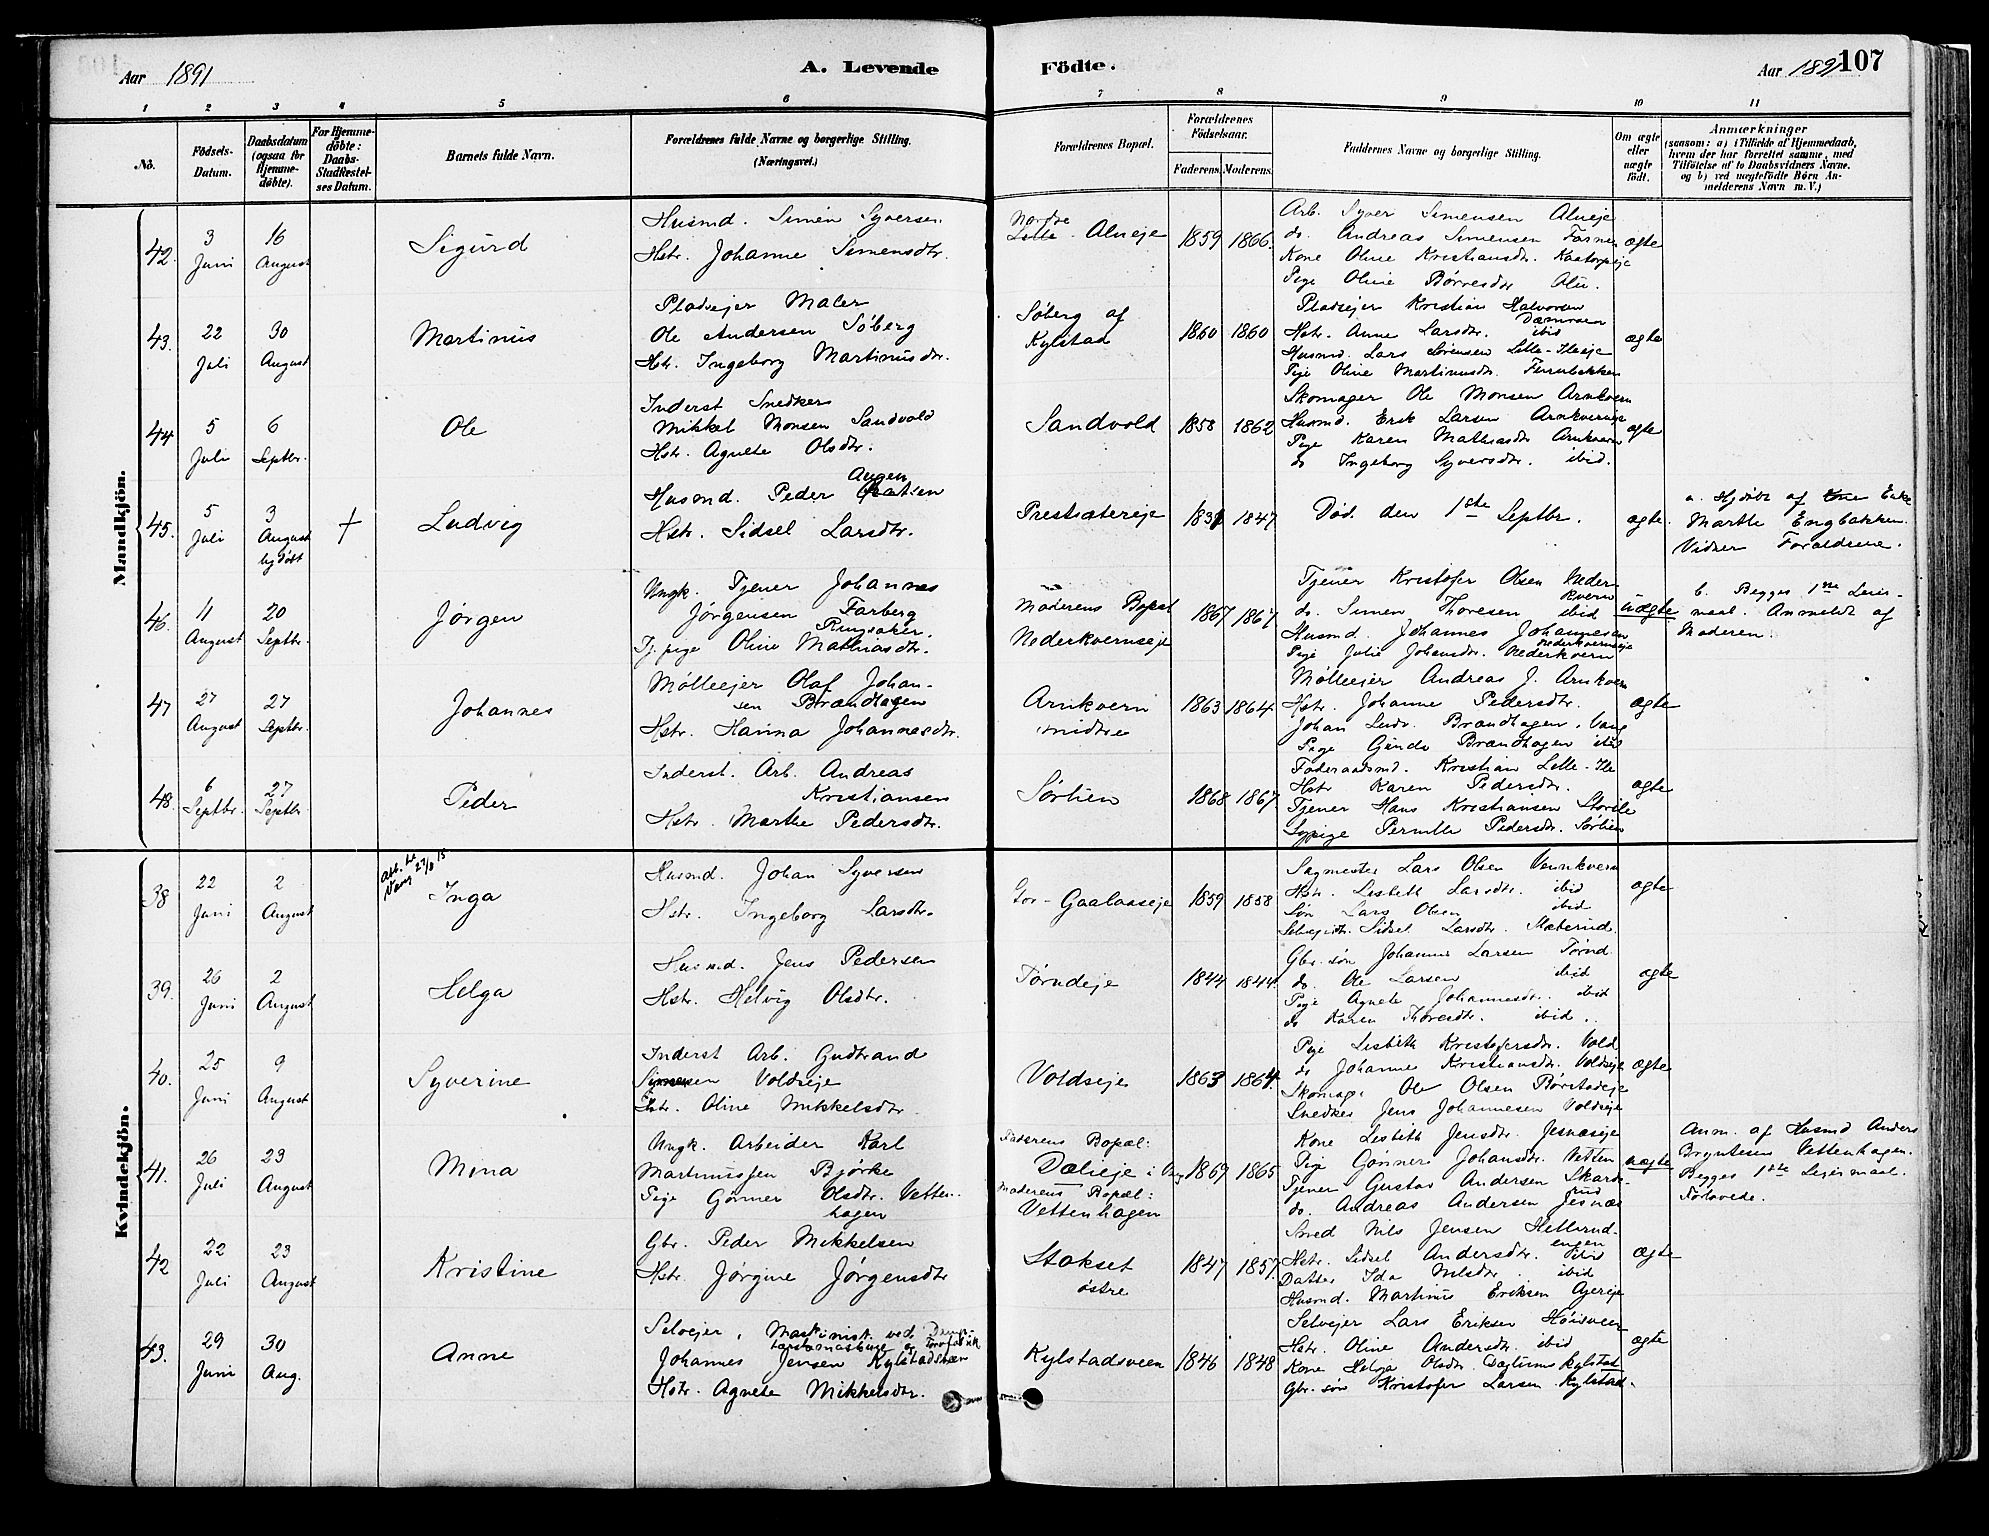 Aar 1891
A. Levende
Födte.
Aar 1891
107
1 2 3 4 5 6 7 8 9 10 11
No.
Födsels-Datum.
Daabsdatum (ogsaa for Hjemme-döbte).
For Hjemme-döbte: Daabs-Stadfæstel-ses Datum.
Barnets fulde Navn.
Forældrenes fulde Navne og borgerlige Stilling. (Næringsvei.)
Forældrenes Bopæl.
Forældrenes Födselsaar.
Faderens.
Moderens.
Faddernes Navne og borgerlige Stilling.
Om ægte eller uægte födt.
Anmærkninger
(saasom: a) i Tilfælde af Hjemmedaab,
hvem der har forrettet samme, med
Tilföielse af to Daabsvidners Navne,
og b) ved uægtefödte Börn An-
melderens Navn m. V.)
Mandkjön.
42. 3 Juni 16 August Sigurd
Husmd. Simen Syversen
Hstr. Johanne Simensdtr.
Nordre Alueje 1859 1866.
Arb. Syver Simensen Alueje
do. Andreas Simensen
Kone Oline Kristiansdtr.
Pige Oline Børresdtr Alu.
ægte
43. 22 Juli 30 August Martinus
Pladsejer Maler
Ole Andersen Söberg
Hstr. Ingeborg Martinusdtr.
Söberg af Kylstad 1860 1860
Pladsejer Kristian Halvorsen
Hstr. Anne Larsdtr. ibid
Husmd. Lars Sørensen Lille-Ileeje
Pige Oline Martinusdtr.
ægte
44 5 Juli 6 Septbr. Ole
Inderst Snedker
Mikkel Monsen Sandvold
Hstr. Agnete Olsdtr.
Sandvold 1858 1862
Skomager Ole Monsen Arnkvern
Husmd. Erik Larsen Arnkverneje
Pige Karen Mathiasdtr Arnkvern
do Ingeborg Syversdtr. ibid.
ægte
45. 5 Juli 3 August hjdøbt + Ludvig
Husmd. Peder
Hstr. Sidsel Larsdtr.
Prestsætereje 1847
Död den 1ste Septbr.
ægte.
a. Hjdøbt af Enke
Marthe Engbakken.
Vidner Forældrene.
46. 11 August 20 Septbr. Jørgen
Ungk. Tjener Johannes
Jørgensen Farberg
Ringsaker.
Tj.pige Oline Mathiasdtr.
Moderens Bopæl
Nederkvernseje 1867 1867
Tjener Kristofer Olsen Neder
kvern
do. Simen Thoresen ibid
Husmd. Johannes Johannesen
Nederkvernseje
Pige Julie Johansdtr. Nederkvern
uægte
b. Begges 1ste Leier-
maal. Anmeldt af
Moderen.
47 27 August 27 Septbr. Johannes
Mölleejer Olaf Johan-
sen Brændhagen
Hstr. Hanna Johannesdtr.
Arnkvern midtre 1863 1864
Mölleejer Andreas J. Arnkvern
Hstr. Johanne Pedersdtr.
Johan Ludv. Brændhagen, Vang
Pige Brændhagen ibid
ægte
48. 6 Septbr. 27 Septbr. Peder
Inderst. Arb. Andreas
Kristiansen
Hstr. Marthe Pedersdtr.
Sörlien 1868 1867
Föderaadsmd. Kristian Lille-Ile
Hstr Karen Pedersdtr.
Tjener Hans Kristiansen Storile
Sypige Pernille Pedersdtr. Sörlien
ægte
Kvindekjön.
38 22 Juni 2 August Inga
Vang 27/8 15
Husmd. Johan Syversen
Hstr. Ingeborg Larsdtr.
Gaalaaseje 1859 1858
Sagmester Lars Olsen
Hstr. Lisbeth Larsdtr. ibid
Sön Lars Olsen ibid
Sidsel Larsdtr.
ægte
39. 26 Juni 2 August Helga
Husmd. Jens Pedersen
Hstr. Helvig Olsdtr.
Törndeje 1844 1844.
Gbr.sön Johannes Larsen Törnd
do. Ole Larsen ibid
Pige Agnete Johannesdtr. ibid
do Karen Thoresdtr. ibid.
ægte
40. 25 Juni 9 August Syverine
Inderst Arb. Gudbrand
Simensen Voldseje
Hstr. Oline Mikkelsdtr.
Voldseje 1863 1864.
Pige Lisbeth Kristofersdtr. Vold
do Johanne Kristiansdtr. Voldseje
Skomag. Ole Olsen Börstadeje
Snedker Jens Johannesen Voldseje
ægte
41. 26 Juli 23 August Mina
Ungk. Arbeider Karl
Martinussen Bjørke
Pige Gönner Olsdtr. Vetten-
hagen
Faderens Bopæl:
Dælieje i Vang
Moderens Bopæl:
Vettenhagen
1869 1865
Kone Lisbeth Jensdtr. Jesnæseje
Pige Gönner Johansdtr. Vetten
Tjener Gustav Andersen Skards-
rud
do. Andreas Andersen Jesnæs
uægte
Anm. af Husmd Anders
Bryntesen Vettenhagen.
Begges 1ste Leiermaal.
Forlovede.
42 22 Juli 23 August Kristine
Gbr. Peder Mikkelsen
Hstr. Jörgine Jörgensdtr
Stokset östre 1847 1857.
Smed Nils Jensen Hellerud-
engen
Hstr. Sidsel Andersdtr. ibid
Datter Ida Nilsdtr. ibid
Husmd. Martinus Eriksen
ægte
43. 29 Juni 30 Aug. Anne
Selvejer, Maskinist ved
Johannes Jensen Kylstadsveen
Hstr. Agnete Mikkelsdtr.
Kylstadsveen 1846 1848
Selvejer Lars Eriksen Höisveen
Hstr. Oline Andersdtr. ibid
Kone Helga Olsdtr. Kylstad
Gbr.sön Kristofer Larsen Kylstad.
ægte